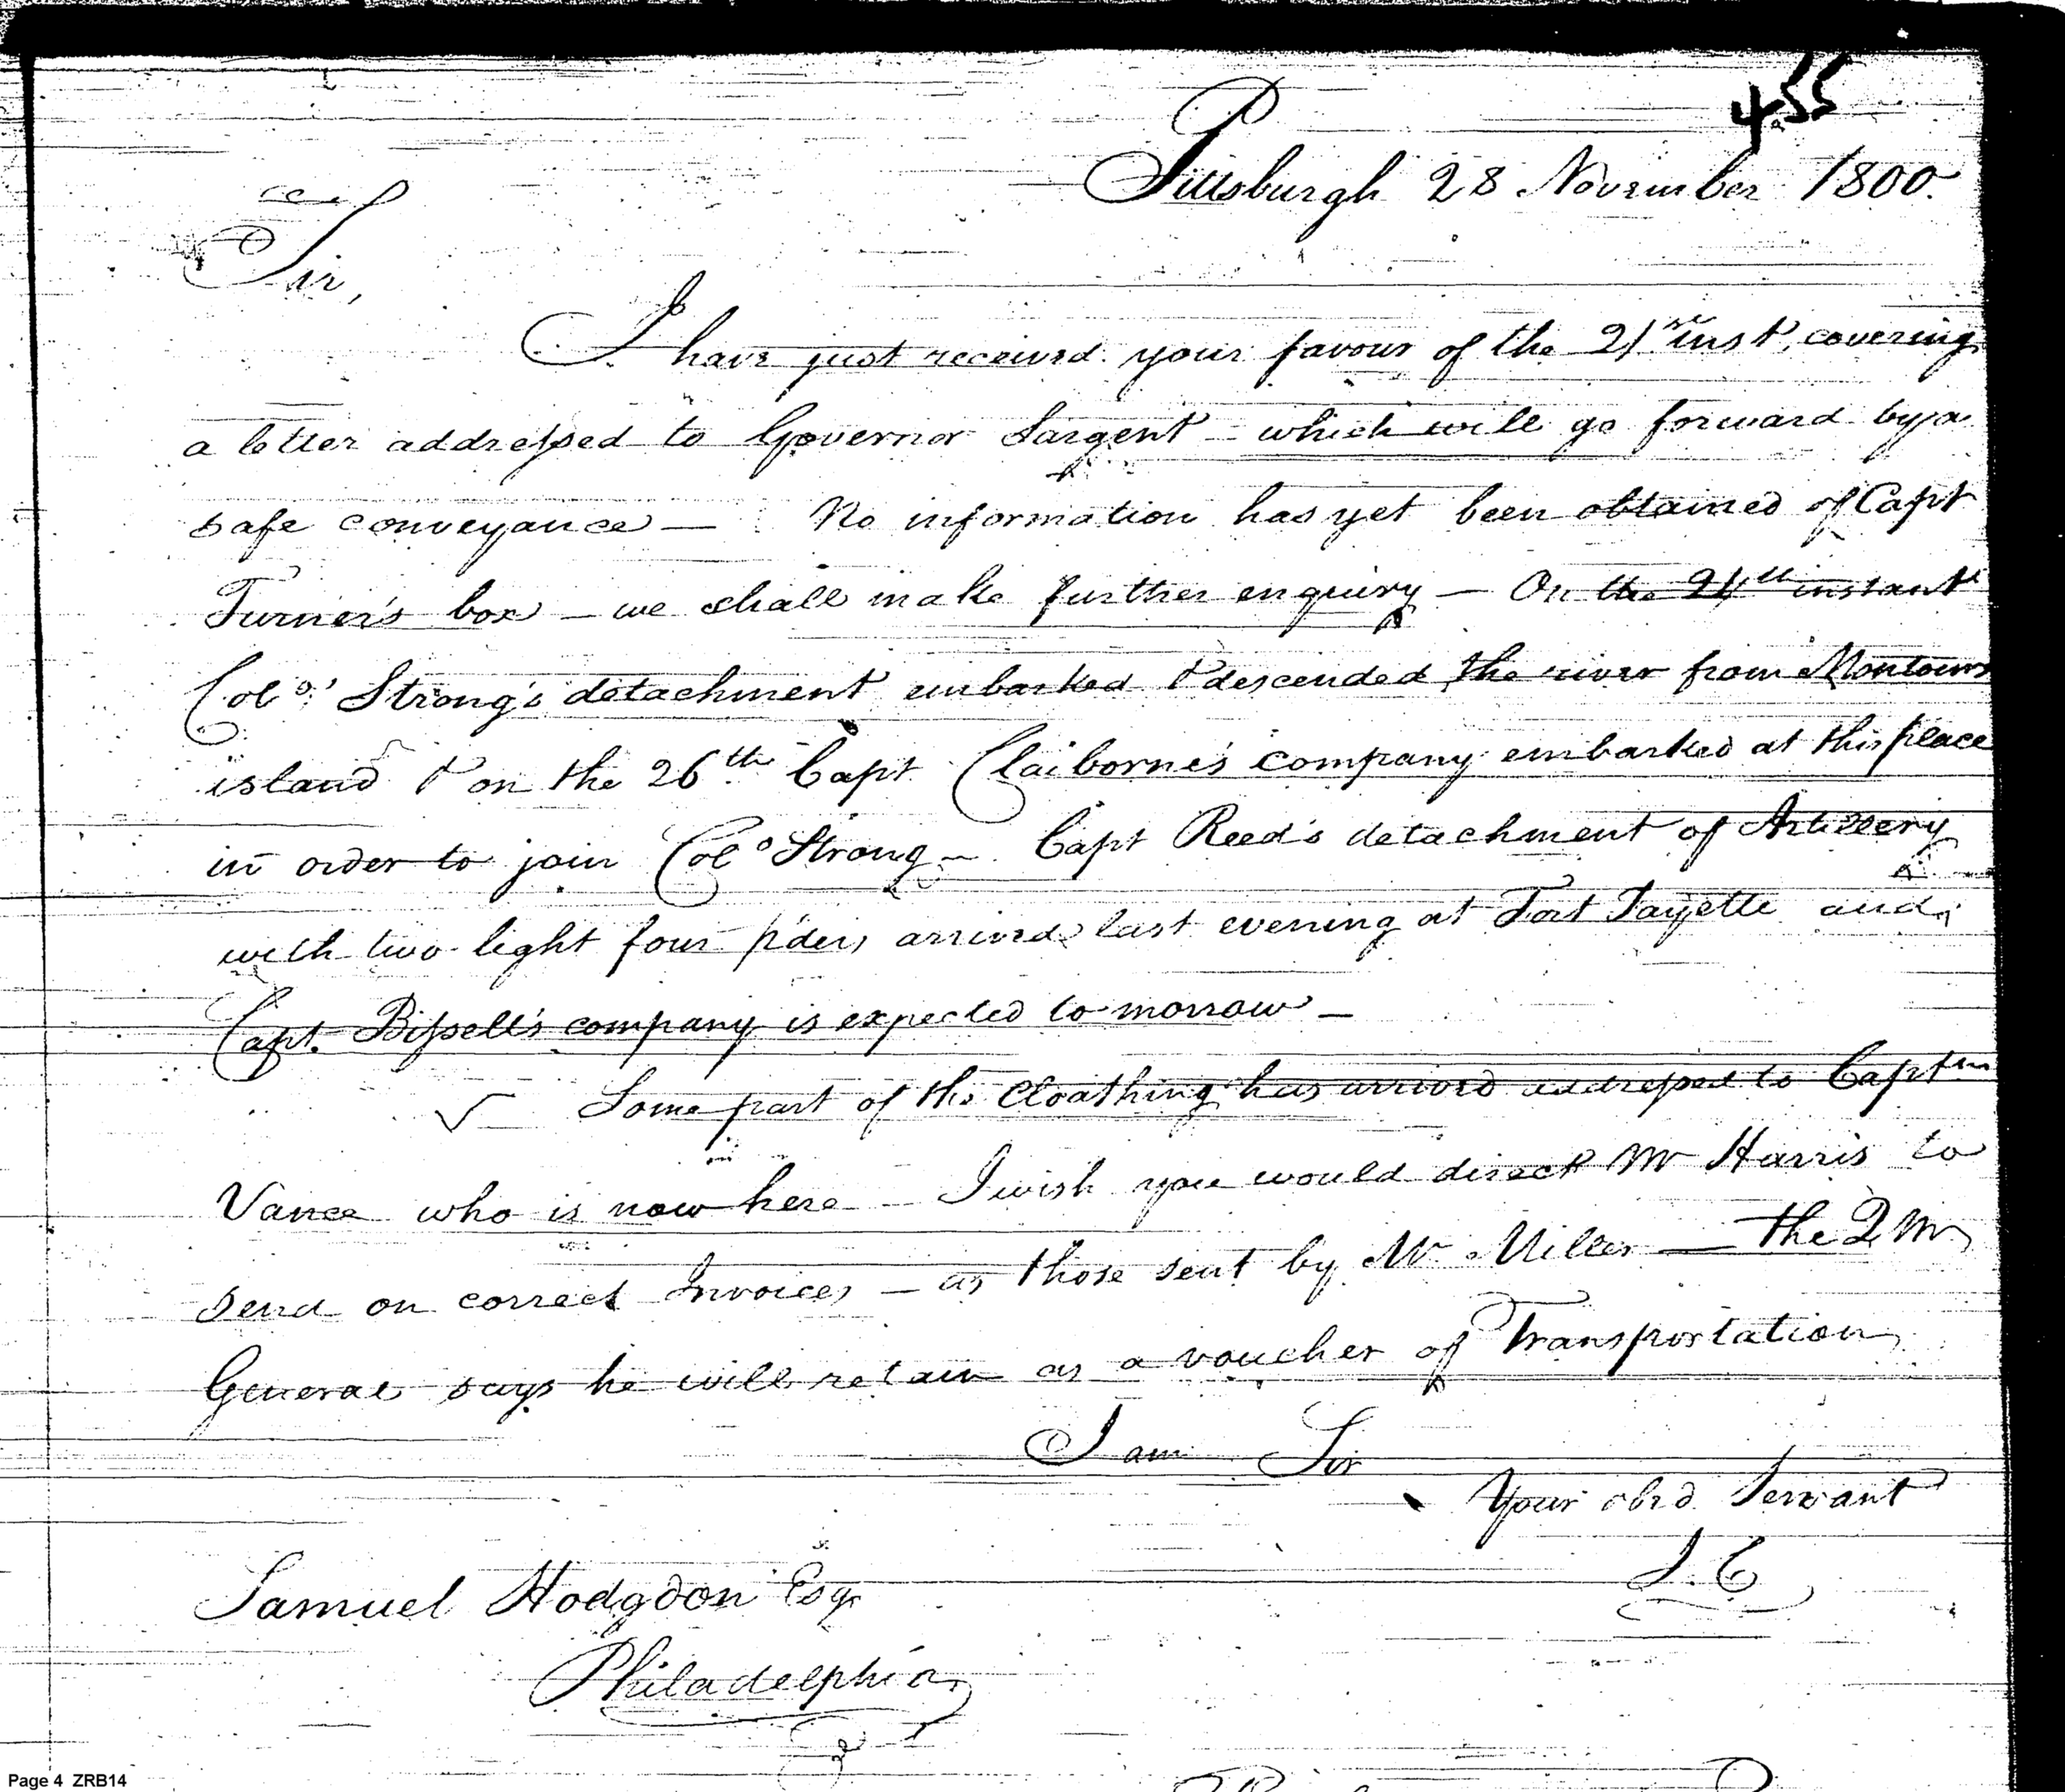 455
Pittsburgh 28 November 1800.
Sir,
I have just received your favour of the 21st inst, covering
a letter addressed to Governor Sargent – which will go forward by a
safe conveyance — No information has yet been obtained of Capt
Turner's box – we shall make further enquiry – On the 24th instant
Colo. Strong's detachment embarked & descended the river from Montours
island & on the 26th Capt Claiborne's company embarked at this place
in order to join Colo Strong – Capt Reed's detachment of Artillery
with two light four p'ders arrived last evening at Fort Fayette and
Capt. Bissell's company is expected to-morrow –
√ Some part of the Cloathing has arrived addressed to Captn
Vance who is now here – I wish you would direct Mr Harris to
send on correct Invoices – as those sent by Mr Miller — the Q M
General says he will retain as a voucher of Transportation
I am Sir
Your obed Servant
Samuel Hodgdon Esqr
J. C
Philadelphia
Page 4 ZRB14